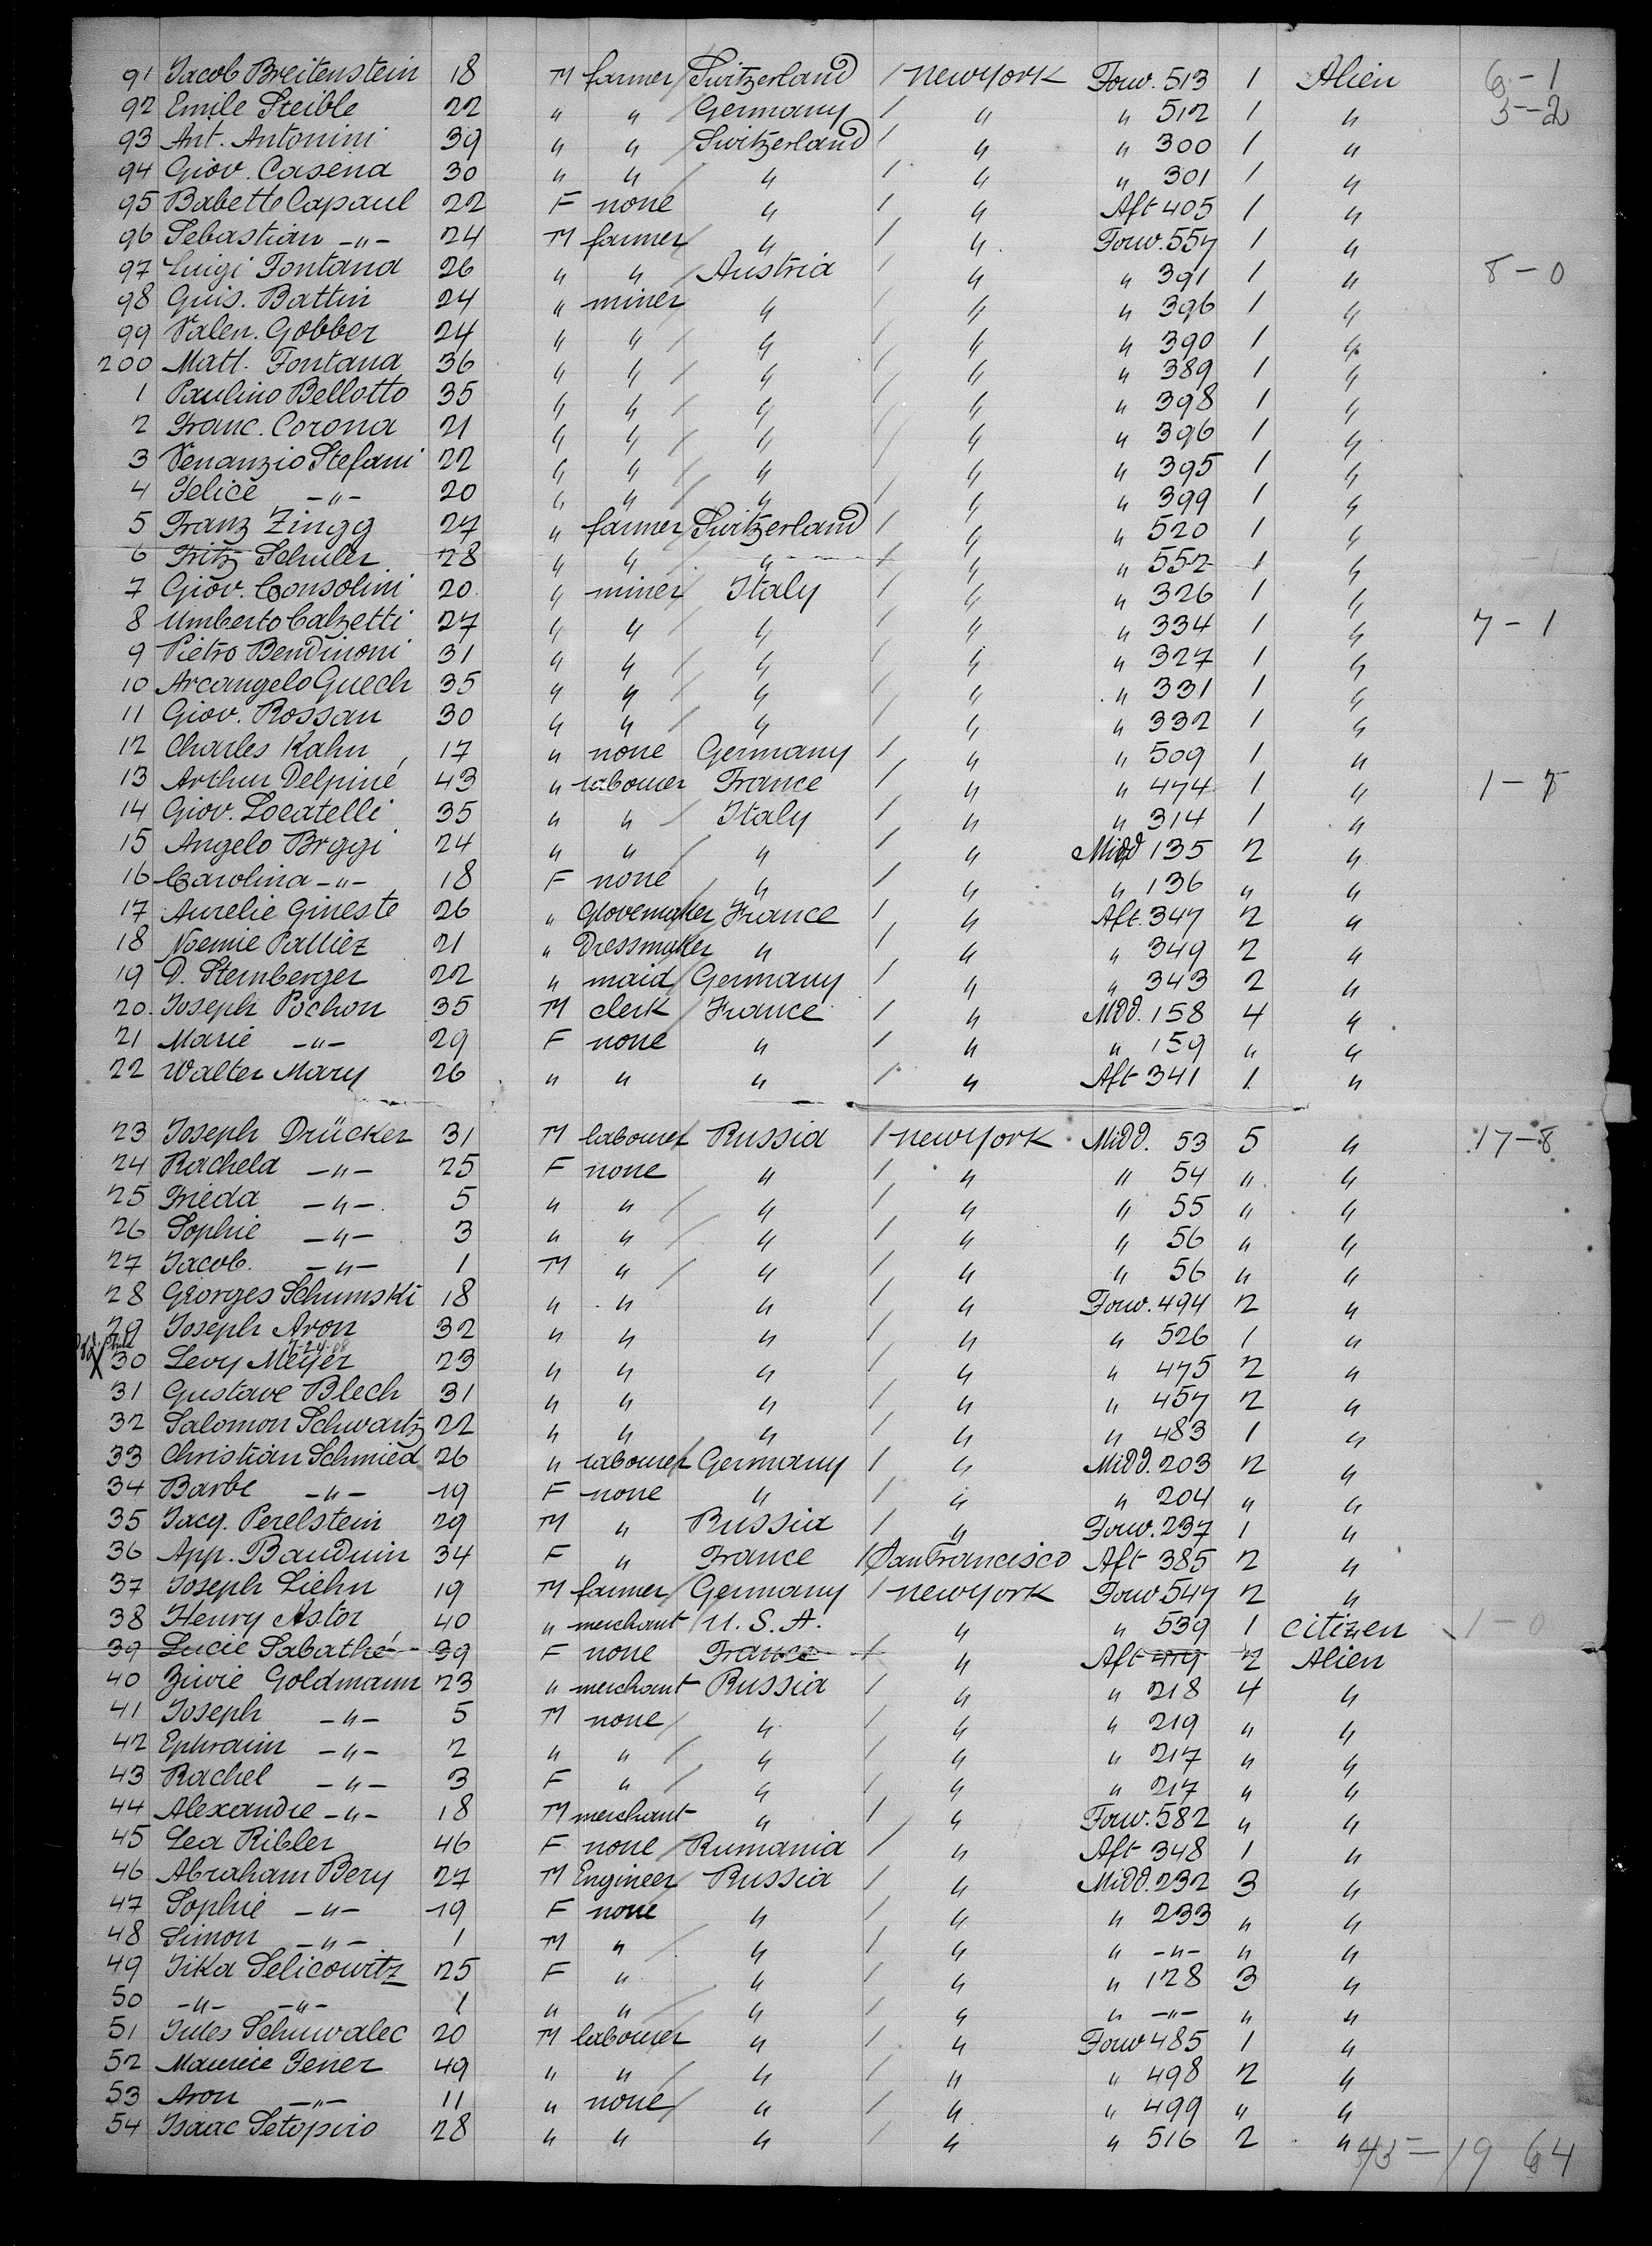 91 Jacob Breitenstein 18 M farmer Switzerland / new york Forw. 513 1 Alien 6 - 1
92 Emile Steible 22 " " Germany / " " 512 1 " 3 - 2
93 Ant. Antonini 39 " " Switzerland / " " 300 1 "
94 Giov. Casena 30 " " " / " " 301 1 "
95 Babette Capaul 22 F none " / " Aft 405 1 "
96 Sebastian -"- 24 M farmer " / " Forw. 557 1 "
97 Luigi Fontana 26 " " Austria / " " 391 1 " 8 - 0
98 Guis. Battin 24 " miner " / " " 396 1 "
99 Valen. Gobber 24 " " " / " " 390 1 "
200 Matt. Fontana 36 " " " / " " 389 1 "
1 Paulino Bellotto 35 " " " / " " 398 1 "
2 Franc. Corona 21 " " " / " " 396 1 "
3 Venanzio Stefani 22 " " " / " " 395 1 "
4 Felice -"- 20 " " " / " " 399 1 "
5 Franz Zingg 27 " farmer Switzerland / " " 520 1 "
6 Fritz Schuler 28 " " " / " " 552 1 " - 1
7 Giov. Consolini 20 " miner Italy / " " 326 1 "
8 Umberto Calzetti 27 " " " / " " 334 1 " 7 - 1
9 Pietro Bendinoni 31 " " " / " " 327 1 "
10 Arcangelo Guech 35 " " " / " " 331 1 "
11 Giov. Rossan 30 " " " / " " 332 1 "
12 Charles Kahn 17 " none Germany / " " 509 1 "
13 Arthur Delpiné 43 " labourer France / " " 474 1 " 1 -
14 Giov. Locatelli 35 " " Italy / " " 314 1 "
15 Angelo Brggi 24 " " " / " Midd 135 2 "
16 Carolina -"- 18 F none " / " " 136 " "
17 Aurelie Gineste 26 " Glovemaker France / " Aft. 347 2 "
18 Noemie Palliez 21 " Dressmaker " / " " 349 2 "
19 D. Sternberger 22 " maid Germany / " " 343 2 "
20. Joseph Pochon 35 M clerk France / " Midd. 158 4 "
21 Marie -"- 29 F none " / " " 159 " "
22 Walter Mary 26 " " " / " Aft 341 1 "
23 Joseph Drücker 31 M labourer Russia / new york Midd. 53 5 " 17 - 8
24 Rachela -"- 25 F none " / " " 54 " "
25 Frieda -"- 5 " " " / " " 55 " "
26 Sophie -"- 3 " " " / " " 56 " "
27 Jacob. -"- 1 M " " / " " 56 " "
28 Georges Schumski 18 " " " / " Forw. 494 2 "
29 Joseph Aron 32 " " " / " " 526 1 "
7-24-08
X 30 Levy Meyer 23 " " " / " " 475 2 "
31 Gustave Blech 31 " " " / " " 457 2 "
32 Salomon Schwartz 22 " " " / " " 483 1 "
33 Christian Schmied 26 " labourer Germany / " Midd. 203 2 "
34 Barbe -"- 19 F none " / " " 204 " "
35 Jacq. Perelstein 29 M " Russia / " Forw. 237 1 "
36 App. Bauduin 34 F " France / San Francisco Aft 385 2 "
37 Joseph Liehn 19 M farmer Germany / new york Forw 547 2 "
38 Henry Astor 40 " merchant U. S. A. " " 539 1 citizen 1 - 0
39 Lucie Sabathé 39 F none France / " Aft 419 2 Alien
40 Ziwie Goldmann 23 " merchant Russia / " " 218 4 "
41 Joseph -"- 5 M none " / " " 219 " "
42 Ephraim -"- 2 " " " / " " 217 " "
43 Rachel -"- 3 F " " / " " 217 " "
44 Alexandre -"- 18 M merchant " / " Forw. 582 " "
45 Lea Ribler 46 F none Rumania / " Aft 348 1 "
46 Abraham Bery 27 M Engineer Russia / " Midd. 232 3 "
47 Sophie -"- 19 F none " / " " 233 " "
48 Simon -"- 1 M " " / " " -"- " "
49 Jika Selicowitz 25 F " " / " " 128 3 "
50 -"- -"- 1 " " " / " " -"- " "
51 Jules Schuwalec 20 M labourer " / " Forw 485 1 "
52 Maurice Fener 49 " " " / " " 498 2 "
53 Aron -"- 11 " none " / " " 499 " "
54 Isaac Setopiro 28 " " " / " " 516 2 "
45 = 19 64